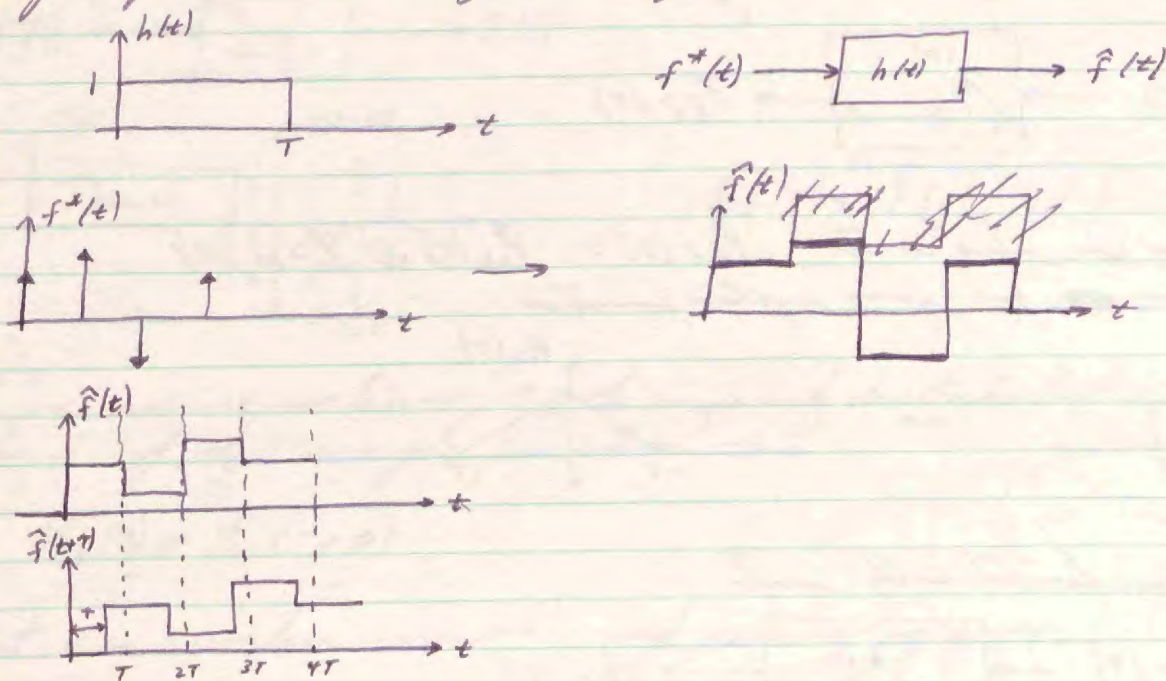 h(t)
1
T
t
f*(t)
h(t)
f̂(t)
f*(t)
t
f̂(t)
t
f̂(t)
t
f̂(t+τ)
τ
T
2T
3T
4T
t